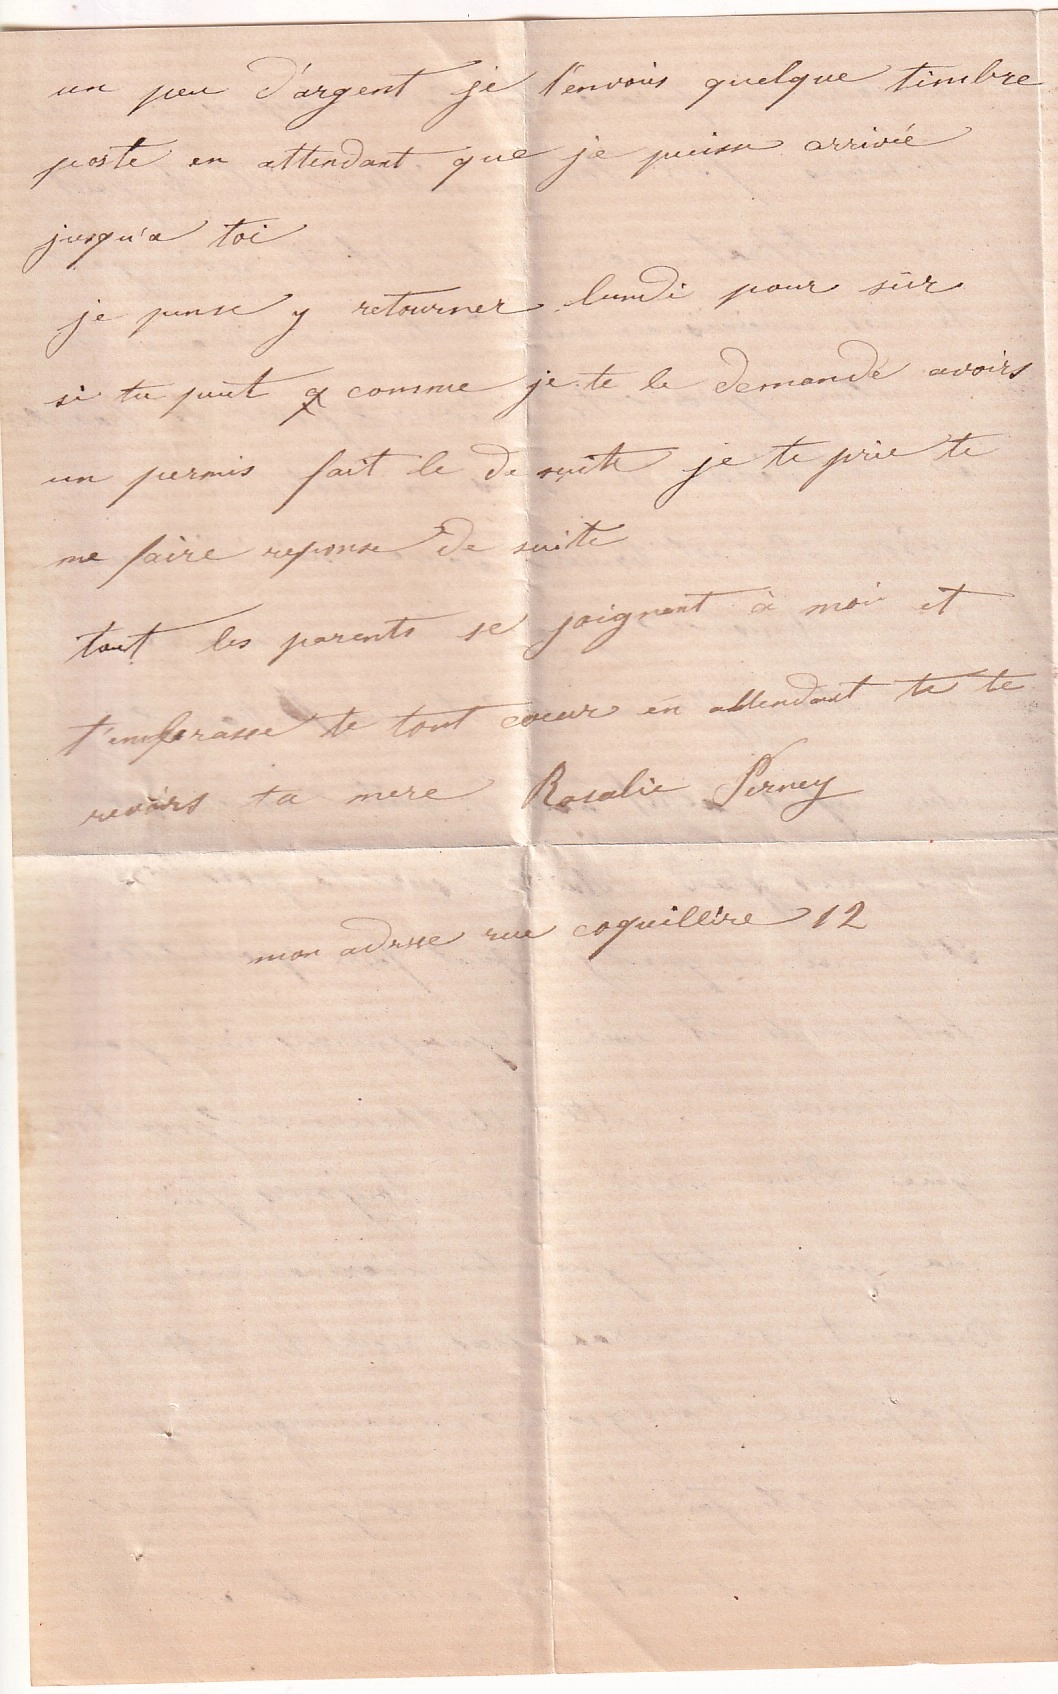 un peu d'argent je t'envois quelque timbre
poste en attendant que je puisse arrivée
jusqu'a toi
je pense y retourner lundi pour sûr
si tu peut comme je te le demande avoirs
un permis fait le de suite je te prie te
me faire reponse de suite
tout les parents se joignent à moi et
t'embrasse te tout coeur en attendant te te
revoirs ta mere Rosalie Perney
mon adrsse rue coquillire 12